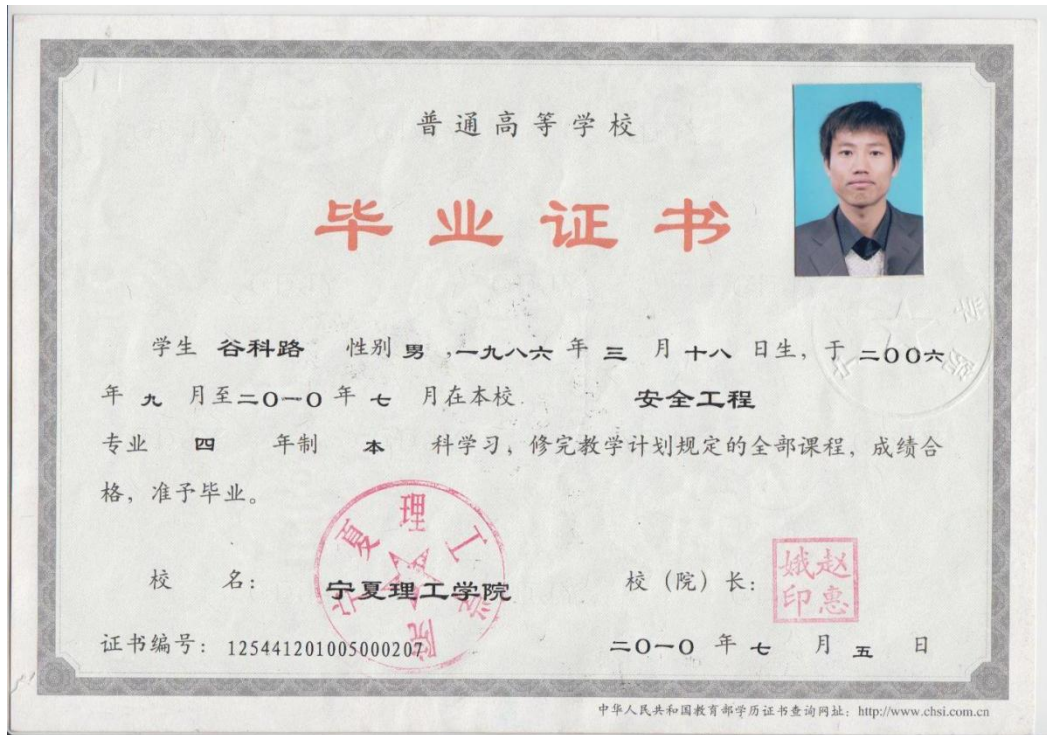 普通高等学校
毕业证书
学生 谷科路 性别 男 ,一九八六 年 三 月 十八 日生，于 二OO六
年 九 月至二O一O 年 七 月在本校 安全工程
专业 四 年制 本 科学习，修完教学计划规定的全部课程，成绩合
格，准予毕业。
宁夏理工学院
校 名： 宁夏理工学院 校（院）长：
赵惠娥印
证书编号： 125441201005000207 二O一O 年 七 月 五 日
中华人民共和国教育部学历证书查询网址：http://www.chsi.com.cn